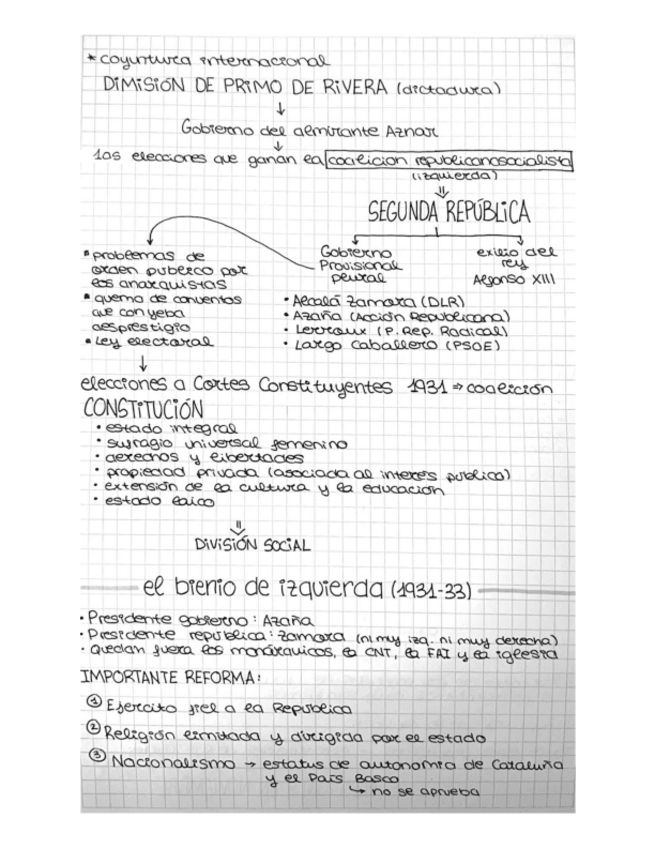 * coyuntura internacional
DIMISIÓN DE PRIMO DE RIVERA (dictadura)
↓
Gobierno del almirante Aznar
↓
las elecciones que ganan la coalicion republicanosocialista
(izquierda)
⇓
SEGUNDA REPÚBLICA
• problemas de
orden publico por
los anarquistas
• quema de conventos
que conlleba
desprestigio
• Ley electoral
Gobierno
Provisional
plural
exilio del
rey
Alfonso XIII
• Alcalá Zamora (DLR)
• Azaña (Acción Republicana)
• Lerroux (P. Rep. Radical)
• Largo Caballero (PSOE)
↓
elecciones a Cortes Constituyentes 1931 ⇒ coalición
CONSTITUCIÓN
• estado integral
• sufragio universal femenino
• derechos y libertades
• propiedad privada (asociada al interes publico)
• extensión de la cultura y la educación
• estado laico
⇓
DIVISIÓN SOCIAL
el bienio de izquierda (1931-33)
• Presidente gobierno: Azaña
• Presidente republica: Zamora (ni muy izq. ni muy derecha)
• Quedan fuera los monárquicos, la CNT, la FAI y la iglesia
IMPORTANTE REFORMA:
① Ejercito fiel a la Republica
② Religión limitada y dirigida por el estado
③ Nacionalismo → estatus de autonomia de Cataluña
y el País Basco
↳ no se aprueba